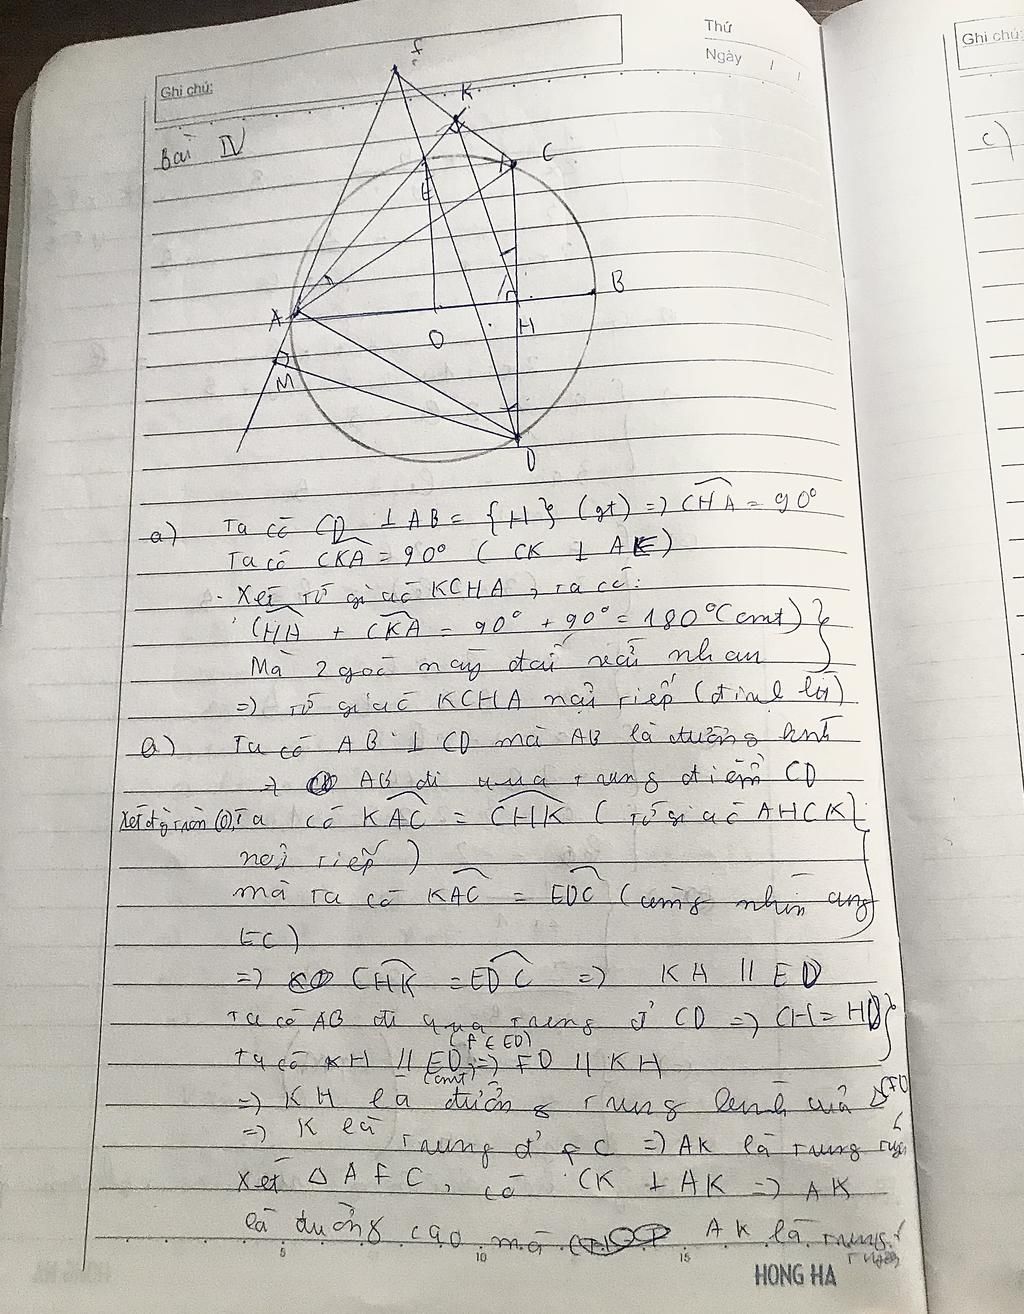 Thứ
Ngày / /
Ghi chú:
Ghi chú:
Bài IV
c)
f
K
C
E
A
O
H
B
M
D
a) Ta có CD ⊥ AB = {H} (gt) => CHA = 90°
Ta có CKA = 90° ( CK ⊥ AE )
- Xét tứ giác KCHA, ta có:
CHA + CKA = 90° + 90° = 180° (cmt) }
Mà 2 góc này đối nhau
=> tứ giác KCHA nội tiếp (định lí)
a) Ta có AB ⊥ CD mà AB là đường kính
=> AB đi qua trung điểm CD
Xét đg tròn (O), Ta có KAC = CHK ( tứ giác AHCK
nội tiếp )
mà ta có KAC = EDC (cùng nhìn cung
EC )
=> CHK = EDC => KH // ED
Ta có AB đi qua trung đ' CD => CH = HD }
(f ∈ ED)
Ta có KH // ED => FD // KH
(cmt)
=> KH là đường trung bình của Δ
=> K là trung đ' fC => AK là trung tuyến
Xét Δ AFC, có CK ⊥ AK => AK
là đường cao mà AK là trung
tuyến
5 10 15
HONG HA